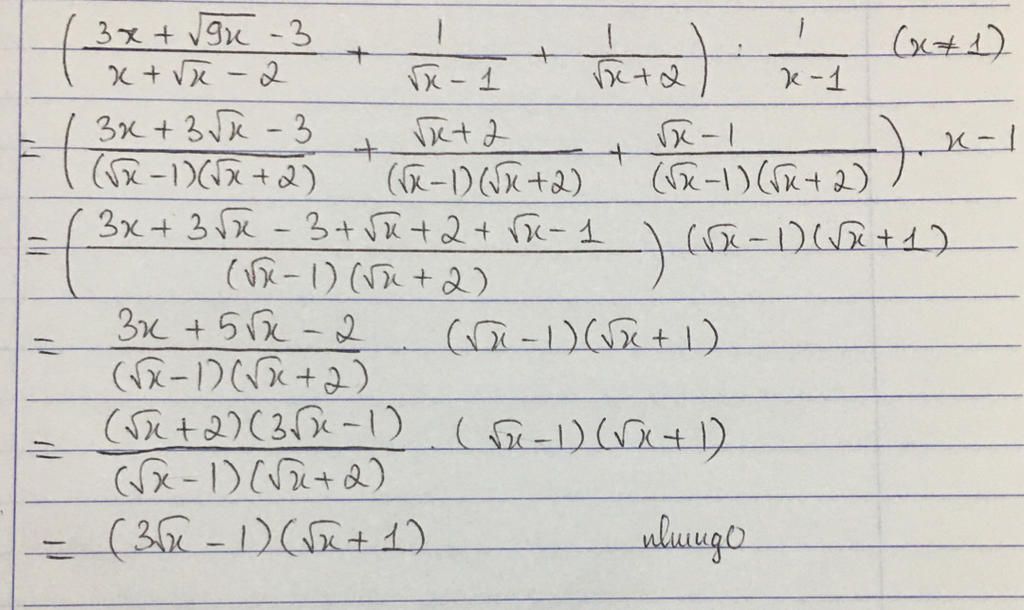 ( (3x + √9x - 3)/(x + √x - 2) + 1/(√x - 1) + 1/(√x + 2) ) : 1/(x - 1) (x ≠ 1)
= ( (3x + 3√x - 3)/((√x - 1)(√x + 2)) + (√x + 2)/((√x - 1)(√x + 2)) + (√x - 1)/((√x - 1)(√x + 2)) ) . x - 1
= ( (3x + 3√x - 3 + √x + 2 + √x - 1)/((√x - 1)(√x + 2)) ) (√x - 1)(√x + 1)
= (3x + 5√x - 2)/((√x - 1)(√x + 2)) . (√x - 1)(√x + 1)
= ((√x + 2)(3√x - 1))/((√x - 1)(√x + 2)) . (√x - 1)(√x + 1)
= (3√x - 1)(√x + 1)